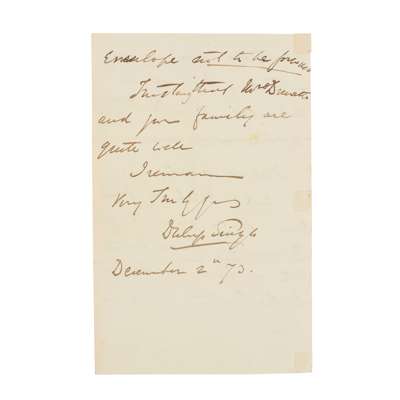 Envelope not to be forwarded
Trusting that Mrs
and your family are
quite well
I remain
Very Truly yrs
Duleep Singh
December 2nd 73.